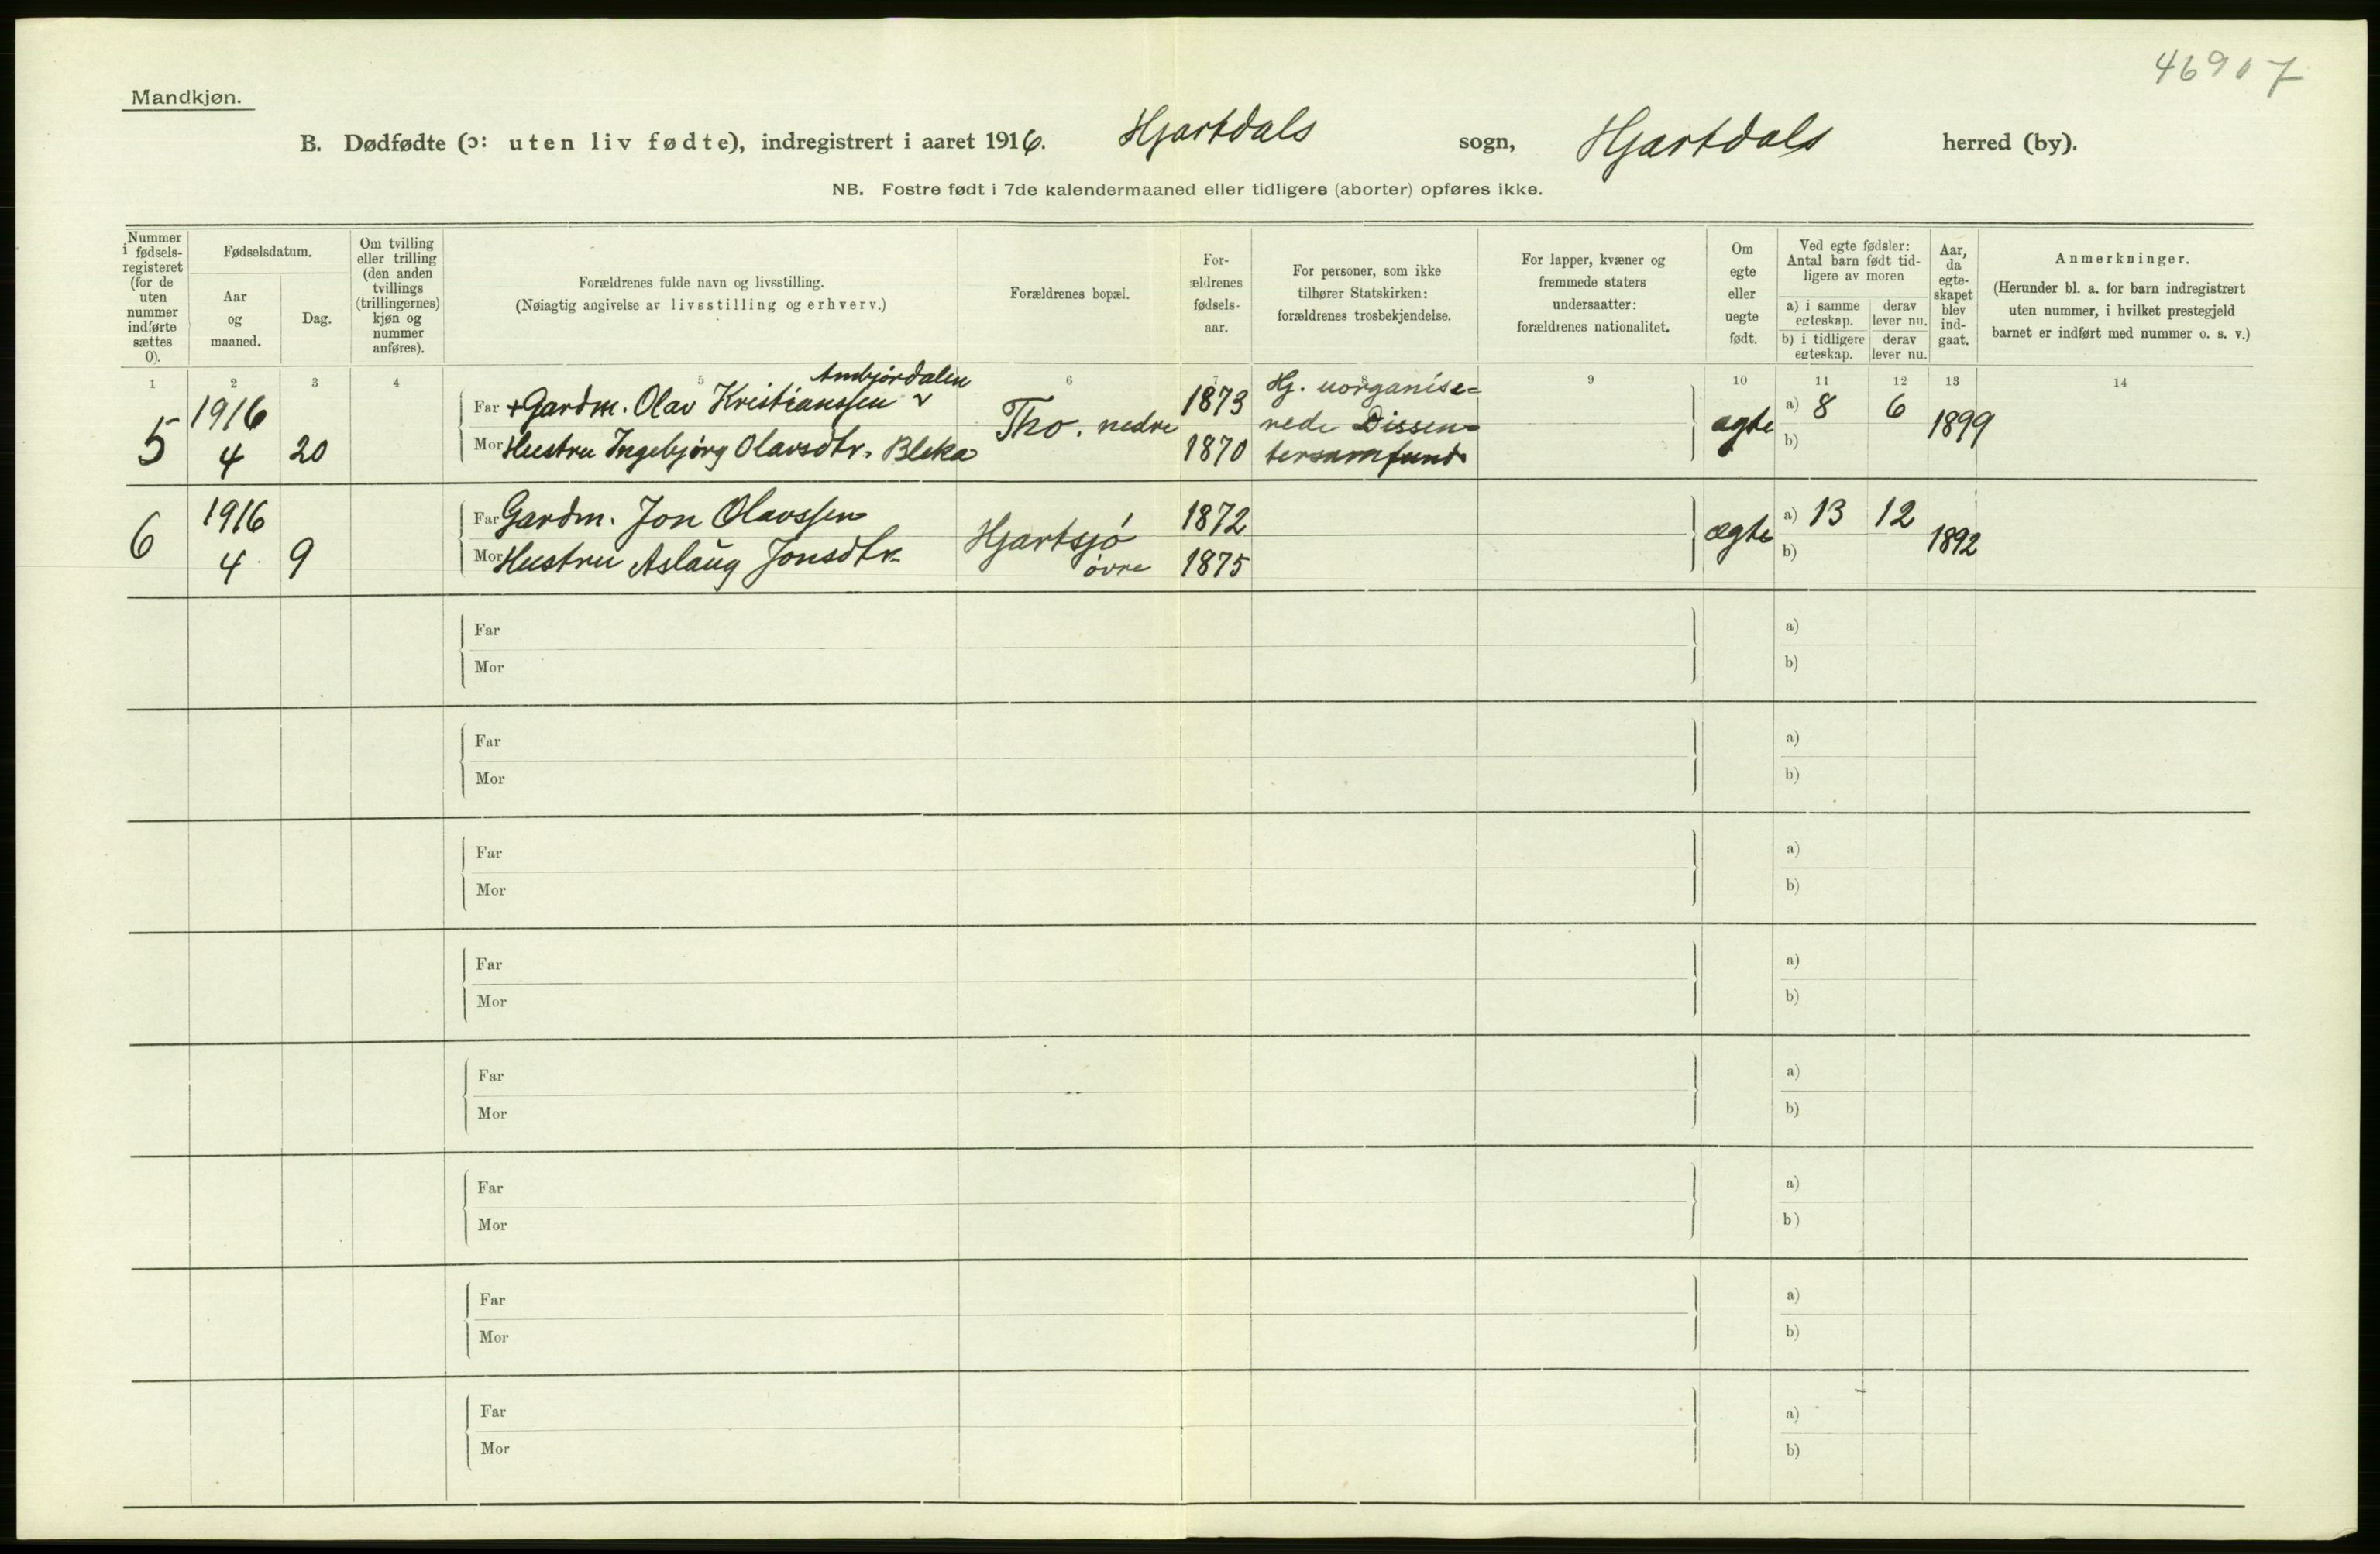 46907
Mandkjøn.
B. Dødfødte (ɔ: uten liv fødte), indregistrert i aaret 1916. Hjartdals sogn, Hjartdals herred (by).
NB. Fostre født i 7de kalendermaaned eller tidligere (aborter) opføres ikke.
Nummer i fødsels-registeret (for de uten nummer indførte sættes 0).
Fødselsdatum.
Aar og maaned.
Dag.
Om tvilling eller trilling (den anden tvillings (trillingernes) kjøn og nummer anføres).
Forældrenes fulde navn og livsstilling.
(Nøiagtig angivelse av livsstilling og erhverv.)
Forældrenes bopæl.
For-ældrenes fødsels-aar.
For personer, som ikke tilhører Statskirken: forældrenes trosbekjendelse.
For lapper, kvæner og fremmede staters undersaatter: forældrenes nationalitet.
Om egte eller uegte født.
Ved egte fødsler: Antal barn født tid-ligere av moren
a) i samme egteskap.
derav lever nu.
b) i tidligere egteskap.
derav lever nu.
Aar, da egte-skapet blev ind-gaat.
Anmerkninger.
(Herunder bl. a. for barn indregistrert uten nummer, i hvilket prestegjeld barnet er indført med nummer o. s. v.)
1 2 3 4 5 6 8 9 10 11 12 13 14
5 1916 4 20
Far + Gardm. Olav Kristianssen Ambjørdalen
Mor Hustru Ingebjørg Olavsdtr. Bleka
Tho. nedre
1873
1870
Hj. uorganise=
rede Dissen=
tersamfund.
ægte a) 8 6 1899
b)
6 1916 4 9
Far Gardm. Jon Olavssen
Mor Hustru Aslaug Jonsdtr.
Hjartsjø
øvre
1872
1875
ægte a) 13 12 1892
b)
Far a)
Mor b)
Far a)
Mor b)
Far a)
Mor b)
Far a)
Mor b)
Far a)
Mor b)
Far a)
Mor b)
Far a)
Mor b)
Far a)
Mor b)